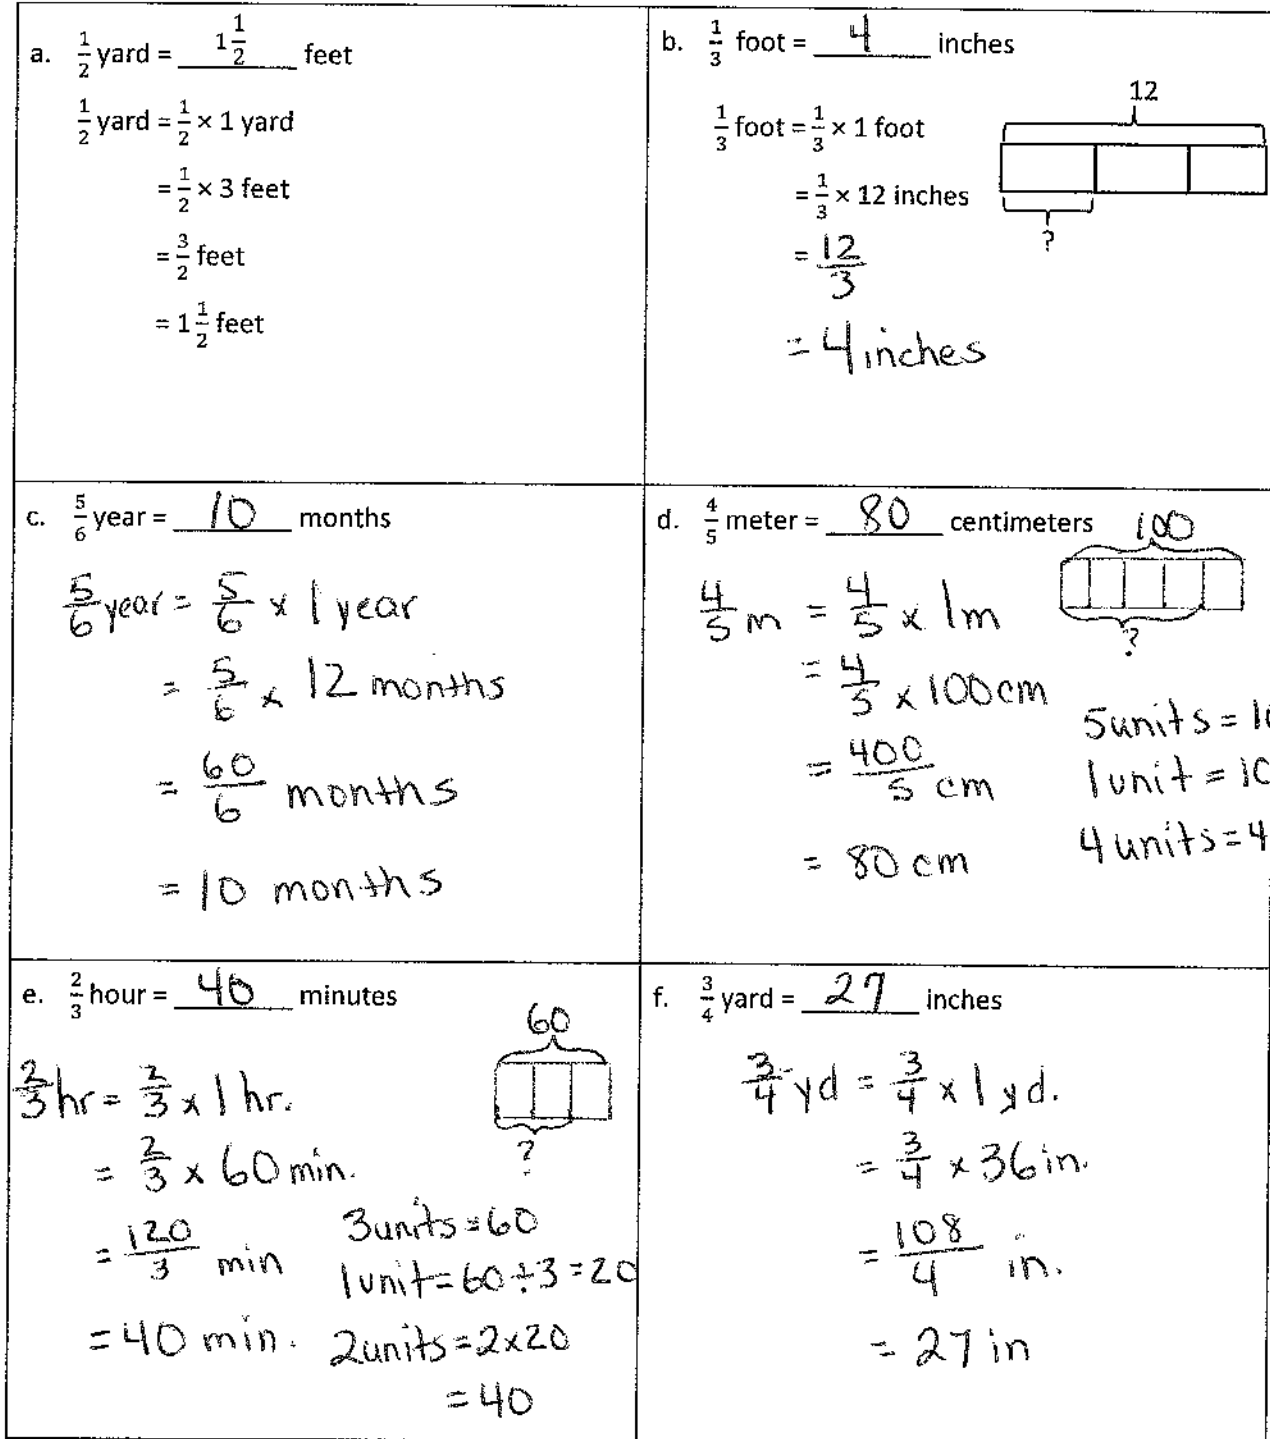 a. 1/2 yard = 1 1/2 feet
1/2 yard = 1/2 × 1 yard
= 1/2 × 3 feet
= 3/2 feet
= 1 1/2 feet
b. 1/3 foot = 4 inches
1/3 foot = 1/3 × 1 foot
= 1/3 × 12 inches
= 12/3
= 4 inches
12
?
c. 5/6 year = 10 months
5/6 year = 5/6 × 1 year
= 5/6 × 12 months
= 60/6 months
= 10 months
d. 4/5 meter = 80 centimeters
4/5 m = 4/5 × 1m
= 4/5 × 100cm
= 400/5 cm
= 80 cm
100
?
5units = 1
1unit = 10
4 units = 4
e. 2/3 hour = 40 minutes
2/3 hr = 2/3 × 1 hr.
= 2/3 × 60 min.
= 120/3 min
= 40 min.
60
?
3units = 60
1unit = 60 ÷ 3 = 20
2units = 2×20
= 40
f. 3/4 yard = 27 inches
3/4 yd = 3/4 × 1 yd.
= 3/4 × 36 in.
= 108/4 in.
= 27 in